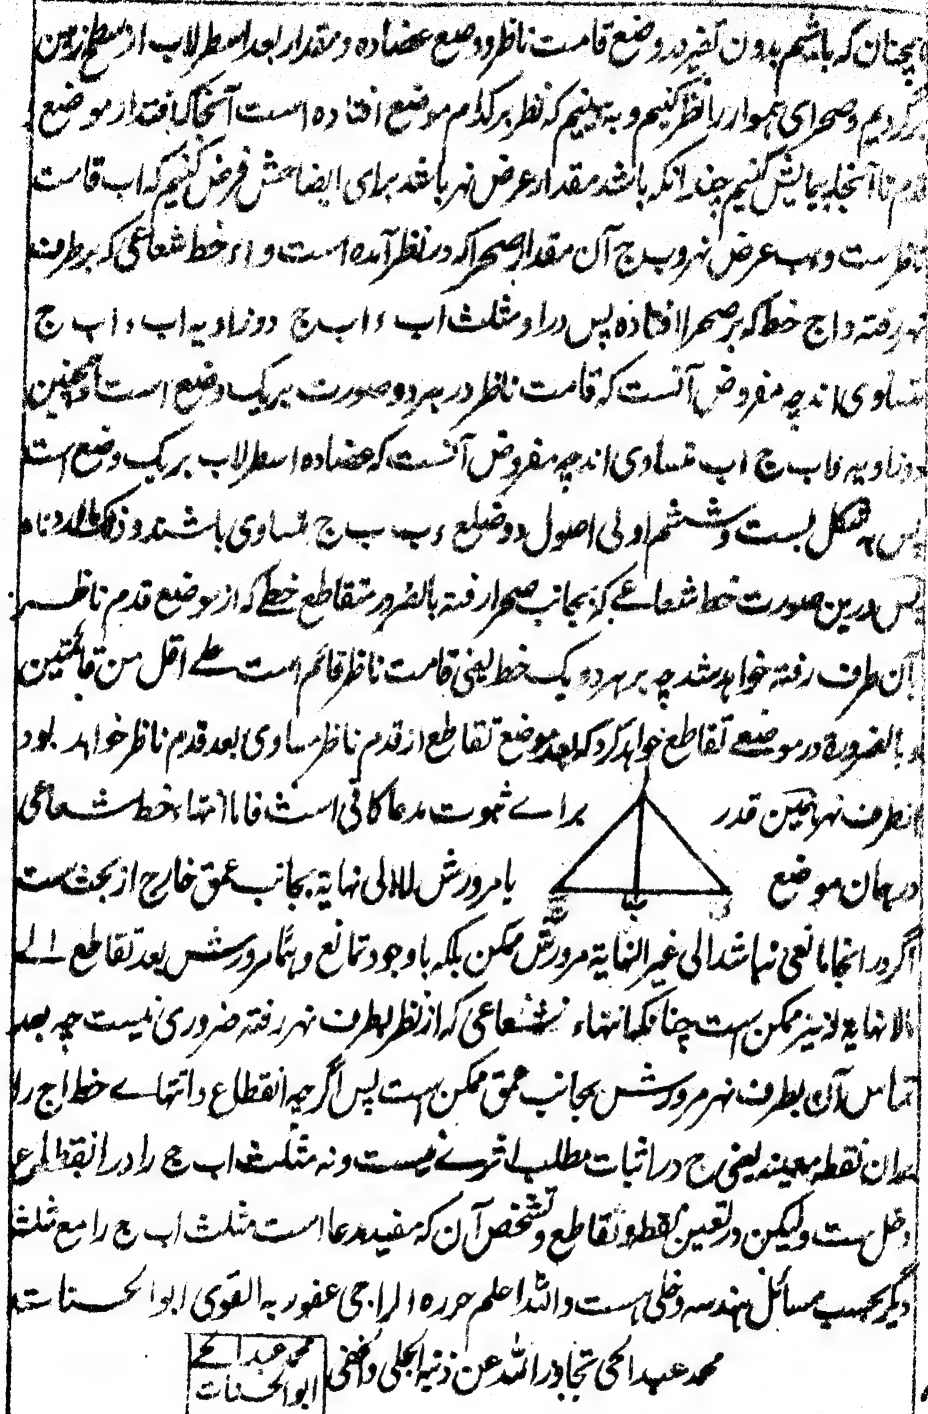 ہمچنان کہ باشیم بدون تغیر در وضع قامت ناظر و وضع عضادہ و مقدار بعد اسطرلاب از سطح زمین
برگردیم و صحرای ہموار را نظر کنیم و بہ بینیم کہ نظر بر کدام موضع افتادہ است آنجا کہ افتد از موضع
قدم تا آنجا پیمایش کنیم چندانکہ باشد مقدار عرض نہر باشد برای ایضاحش فرض کنیم کہ اب قامت
ناظر ست و ءب عرض نہر و ب ج آن مقدار صحرا کہ در نظر آمدہ است و اء خط شعاعی کہ بر طرف
نہر رفتہ و اج خط کہ بر صحرا افتادہ پس در او مثلث اب ء اب ج دو زاویہ اب ء اب ج
متساوی اند چہ مفروض آنست کہ قامت ناظر در ہر دو صورت بر یک وضع است و ہمچنین
دو زاویہ ء اب ج اب متساوی اند چہ مفروض آنست کہ عضادہ اسطرلاب بر یک وضع است
پس بشکل بست و ششم اولی اصول دو ضلع ء ب ب ج متساوی باشند و ذلک ما اردناہ
پس درین صورت خط شعاعے کہ بجانب صحرا رفتہ بالضرور متقاطع خطے کہ از موضع قدم ناظر
بآن طرف رفتہ خواہد شد چہ بر ہر دو یک خط یعنی قامت ناظر قائم است علے اقل من قائمتین
و بالضرورۃ در موضعے تقاطع خواہد کرد کہ بعد موضع تقاطع از قدم ناظر مساوی بعد قدم ناظر خواہد بود
از طرف نہر ہمین قدر برائے ثبوت مدعا کافی است فاما انتہاء خط شعاعی
در ہمان موضع یا مرورش لا الی نہایۃ بجانب عمق خارج از بحث ست
اگر در انجا مانعی نباشد الی غیر النہایۃ مرورش ممکن بلکہ با وجود تمانع وہما مرورش بعد تقاطع الے
لا نہایۃ لہ نیز ممکن ست چنانکہ انتہاء شعاعی کہ از نظر بطرف نہر رفتہ ضروری نیست چہ بعد
تماس آن بطرف نہر مرورش بجانب عمق ممکن ست پس اگر چہ انقطاع و انتہاے خط اج را
بدان نقطہ معینہ یعنی ج در اثبات مطلب اثرے نیست و نہ مثلث اب ج را در انقطاع
دخل ست ولیکن در تعیین نقطہ تقاطع و تشخص آن کہ مفید مدعا است مثلث اب ج را مع مثلث
دیگر بحسب مسائل ہندسہ دخلی ہست واللہ اعلم حررہ الراجی عفو ربہ القوی ابو الحسنات
محمد عبد الحی تجاوز اللہ عن ذنبہ الجلی والخفی
محمد عبد الحے
ابو الحسنات